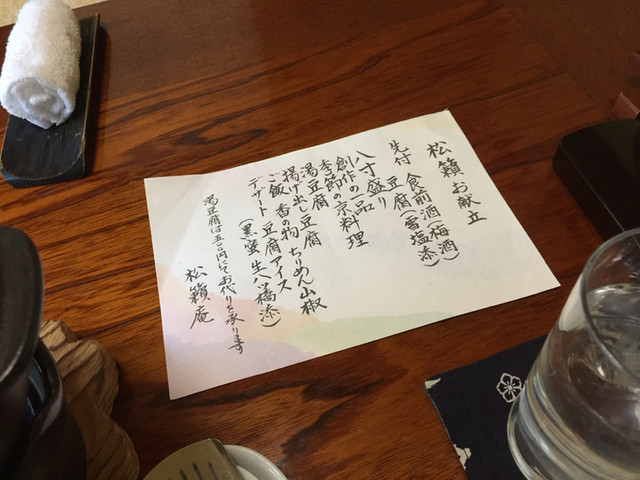 松籟お献立
食前酒(梅酒)
先付 豆腐(雪塩添)
八寸盛り
創作の一品
季節の京料理
湯豆腐
揚げ出し豆腐
ご飯 香の物 ちりめん山椒
デザート 豆腐アイス
(黒蜜 生八橋添)
湯豆腐は五百円にてお代りを承ります
松籟庵